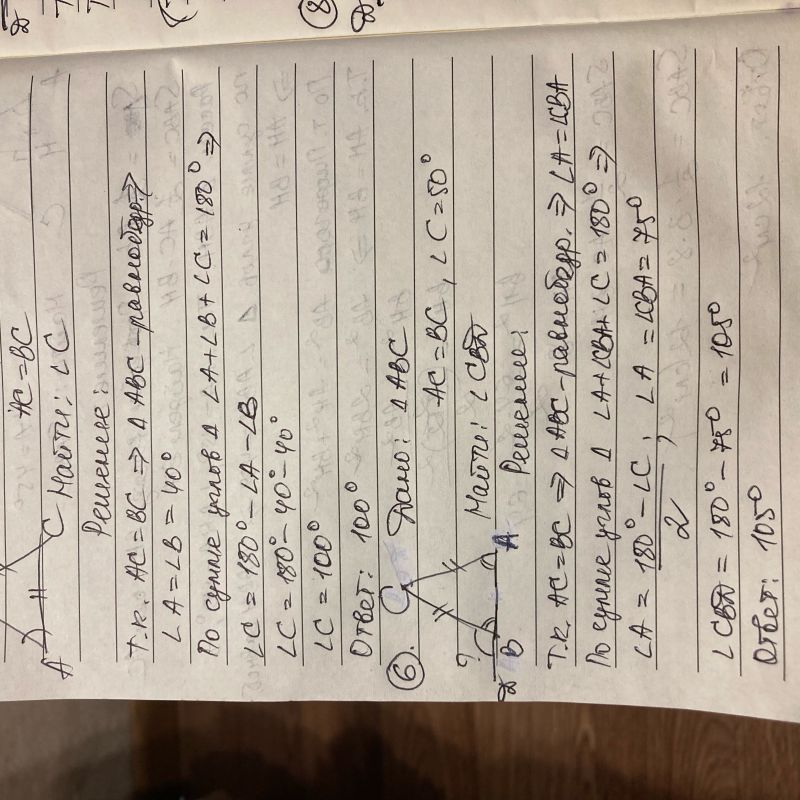 AC = BC
A
C Найти: ∠C
Решение:
Т.к. AC = BC ⇒ Δ ABC - равнобедр. ⇒
∠A = ∠B = 40°
По сумме углов Δ ∠A + ∠B + ∠C = 180° ⇒
∠C = 180° - ∠A - ∠B
∠C = 180° - 40° - 40°
∠C = 100°
Ответ: 100°
6. Дано: Δ ABC
C
AC = BC, ∠C = 50°
? Найти: ∠CBD
D B A
Решение:
Т.к. AC = BC ⇒ Δ ABC - равнобедр. ⇒ ∠A = ∠CBA
По сумме углов Δ ∠A + ∠CBA + ∠C = 180° ⇒
∠A = 180° - ∠C / 2, ∠A = ∠CBA = 75°
∠CBD = 180° - 75° = 105°
Ответ: 105°